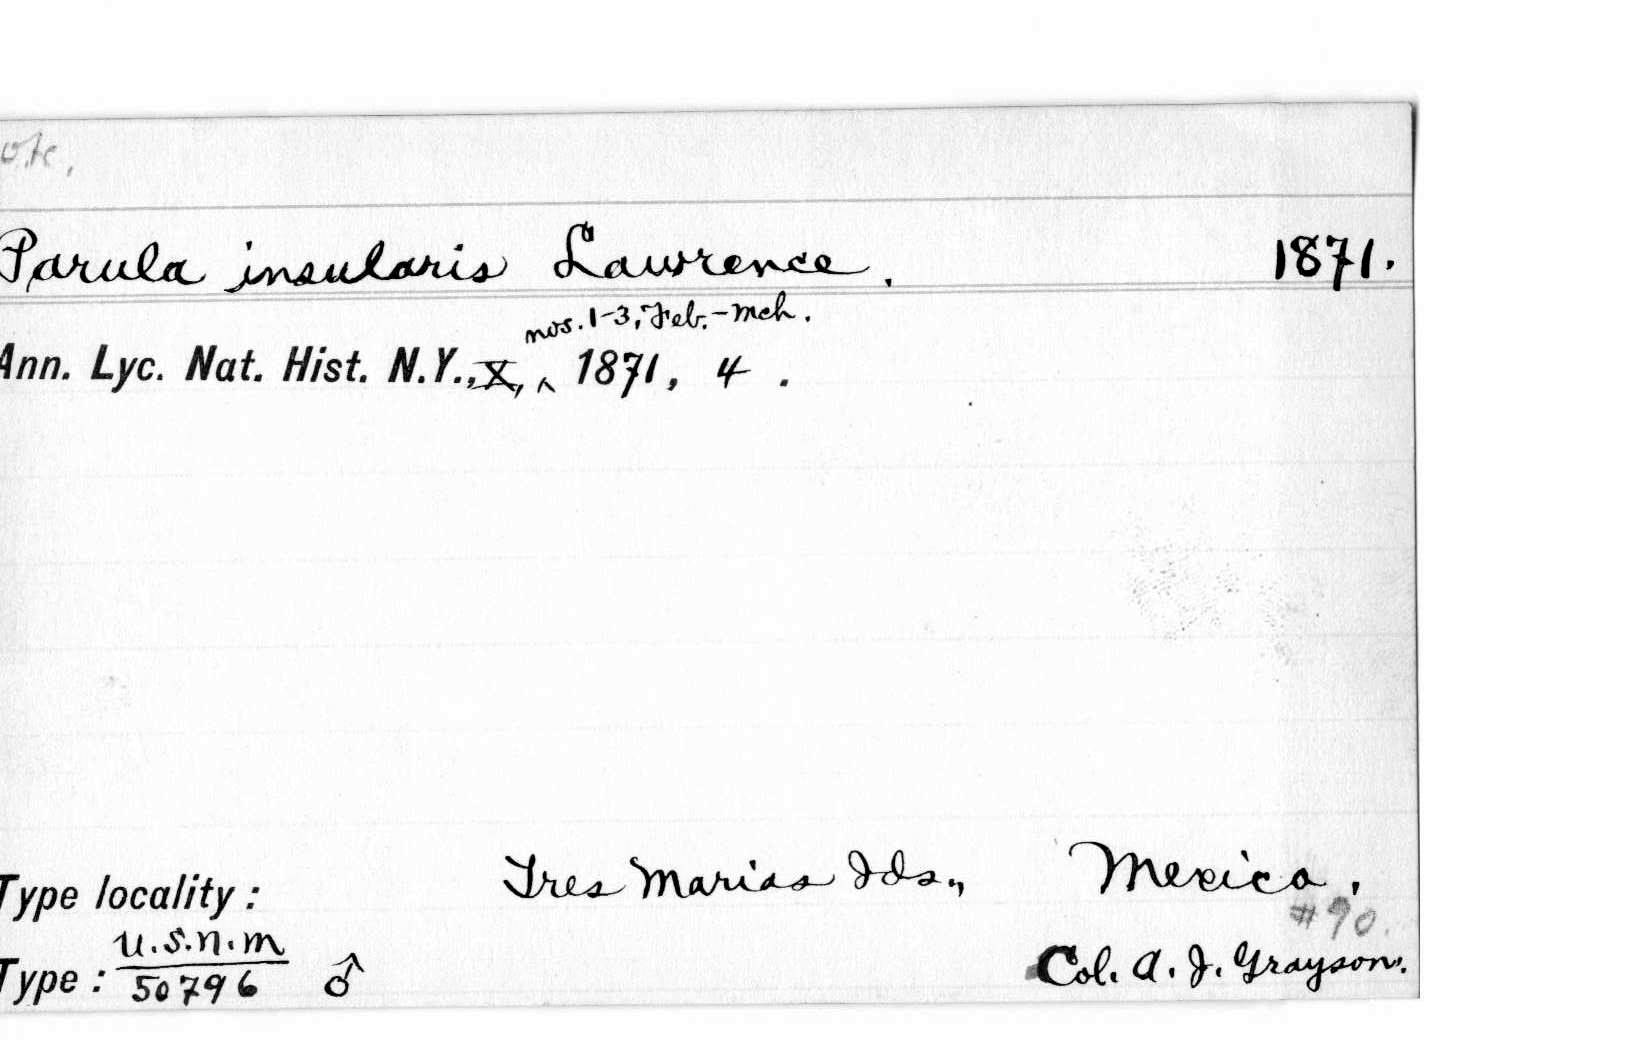 ote,
Parula insularis Lawrence. 1871.
nos. 1-3, Feb.-Mch.
Ann. Lyc. Nat. Hist. N.Y., X, ^ 1871, 4 .
Type locality: Tres Marias Ids., Mexico,
#90.
U.S.N.M
Type: 50796 ♂ Col. A. J. Grayson.